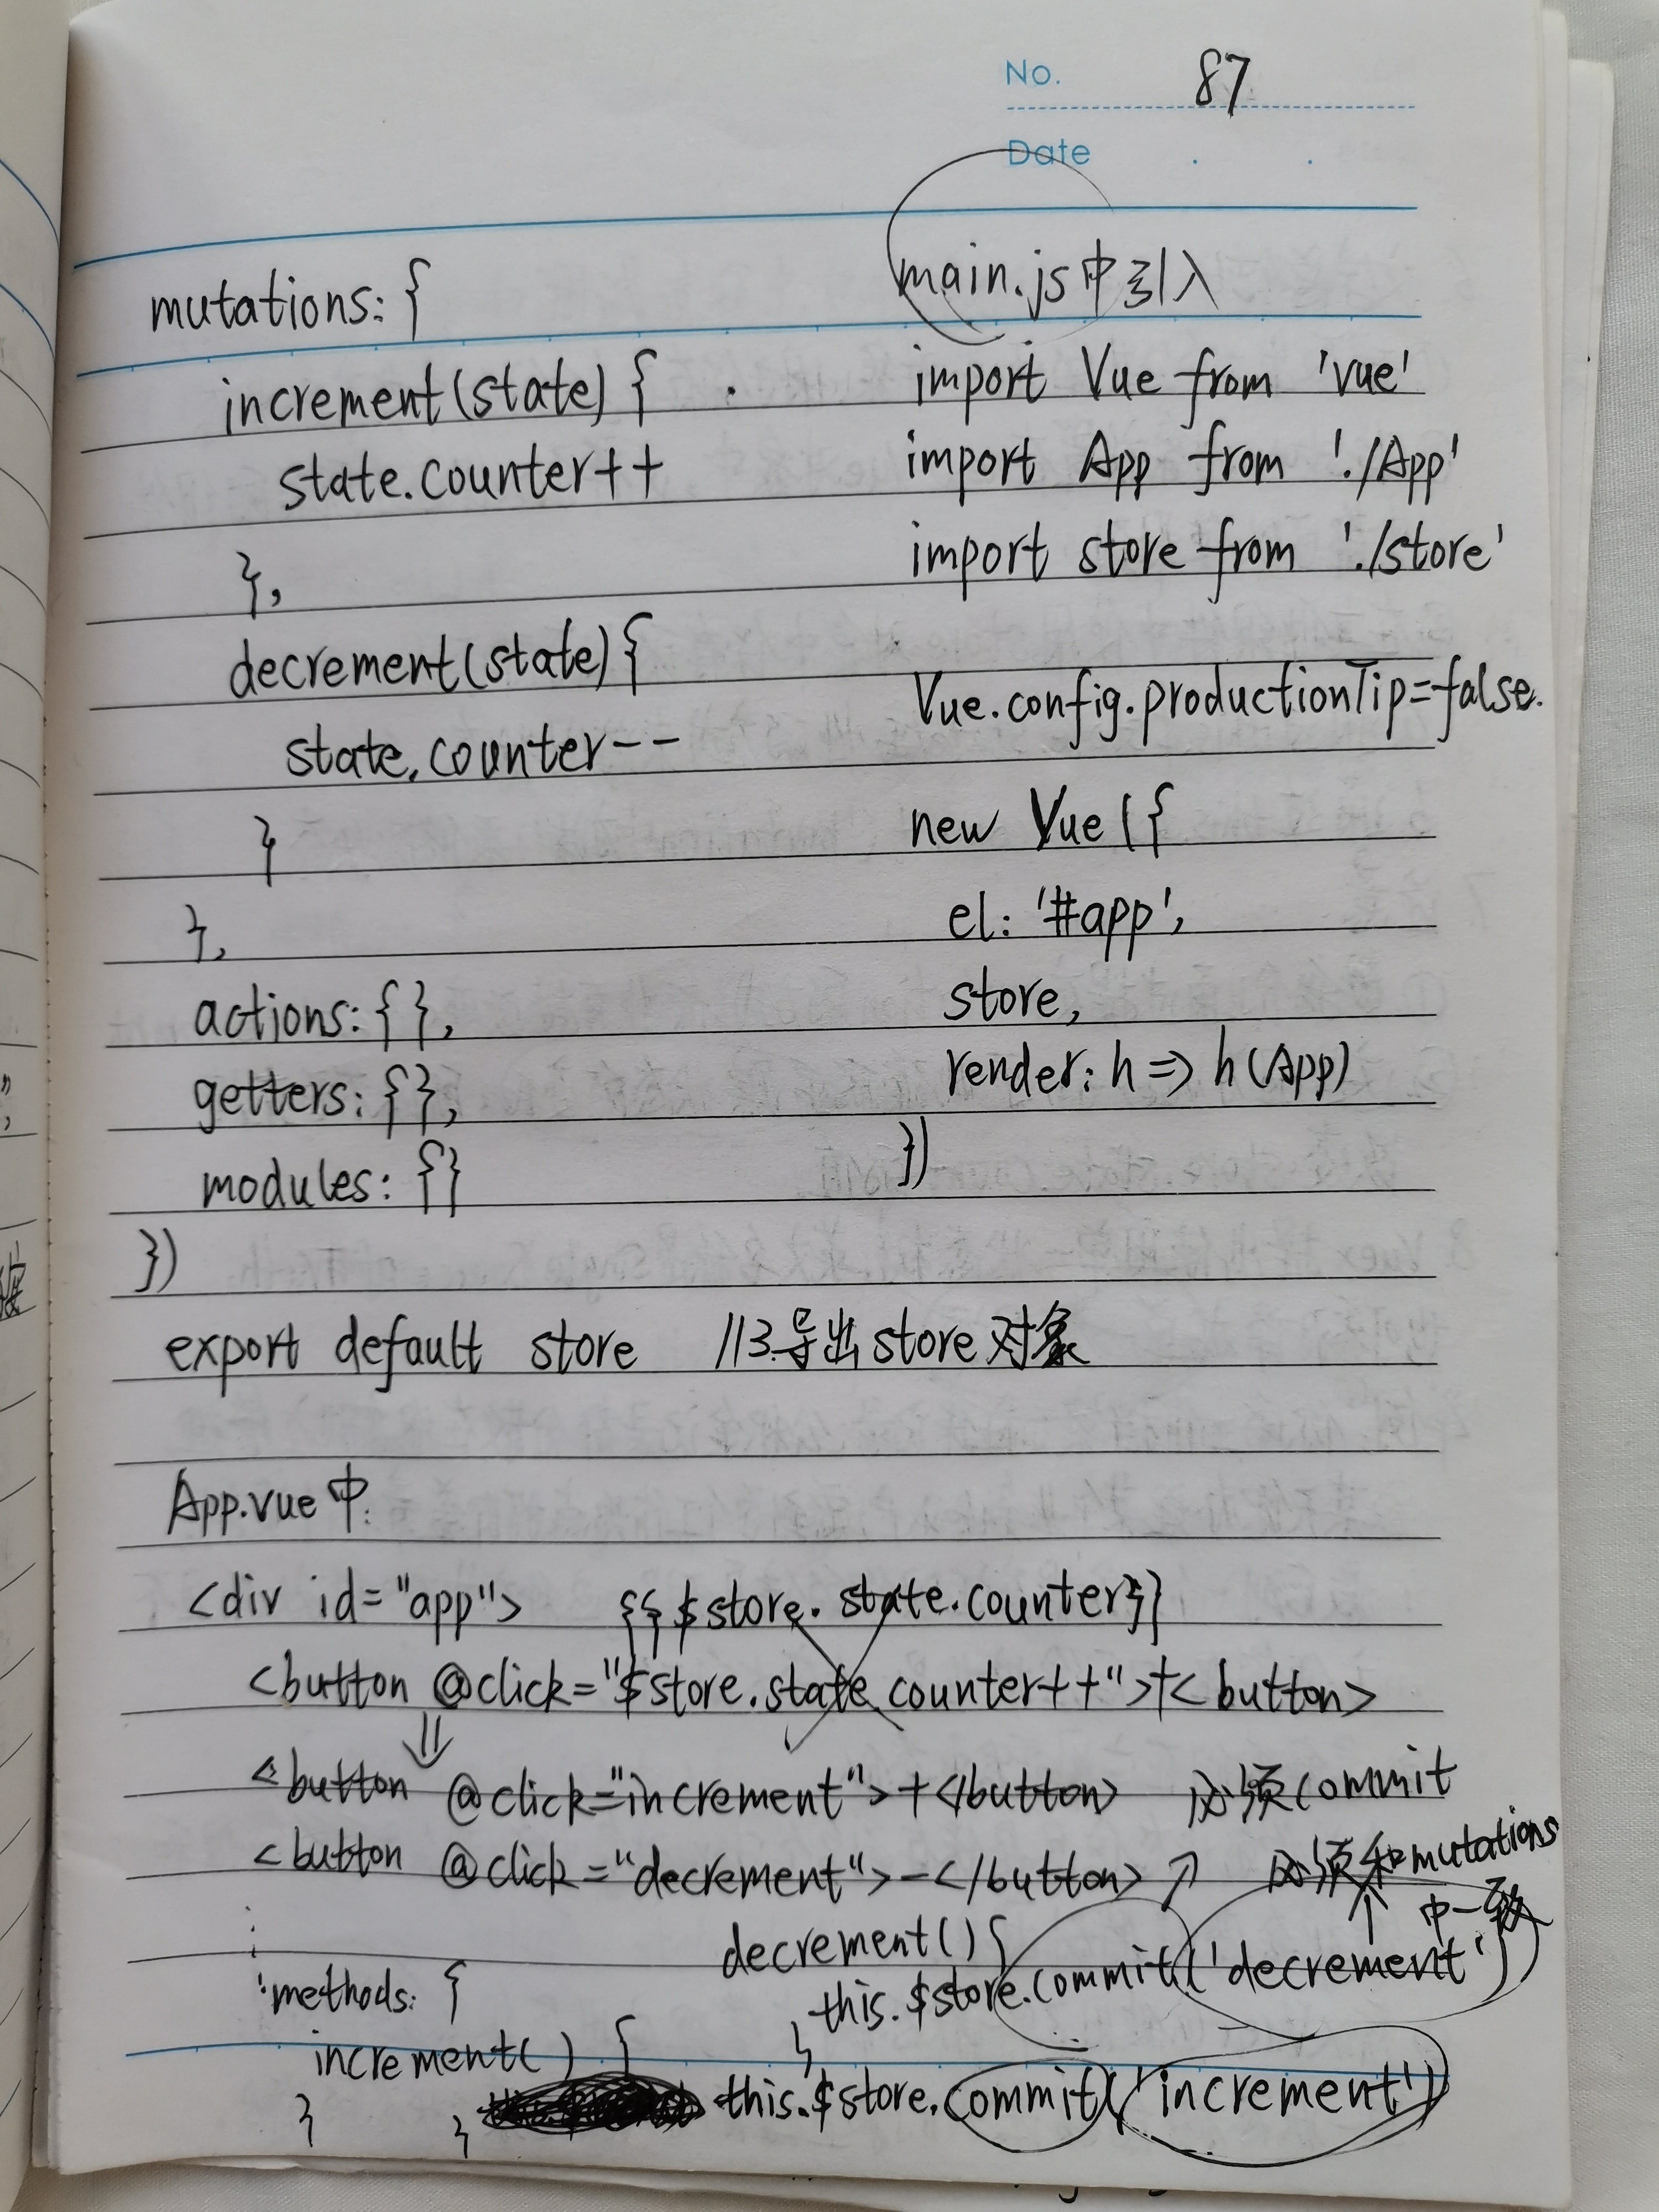 No. 87
Date
mutations: {
increment(state) {
state.counter++
},
decrement(state) {
state.counter--
}
},
actions: { },
getters: { },
modules: { }
})
export default store //3.导出store对象
main.js中引入
import Vue from 'vue'
import App from './App'
import store from './store'
Vue.config.productionTip=false.
new Vue({
el: '#app',
store,
render: h => h(App)
})
App.vue中:
<div id="app"> {{$store.state.counter}}
<button @click="$store.state.counter++">+<button>
⇓
<button @click="increment">+</button> 必须commit
<button @click="decrement">-</button> ↗ 必须和mutations
中一致
methods: {
increment() {
this.$store.commit('increment')
}
}
decrement() {
this.$store.commit('decrement')
}